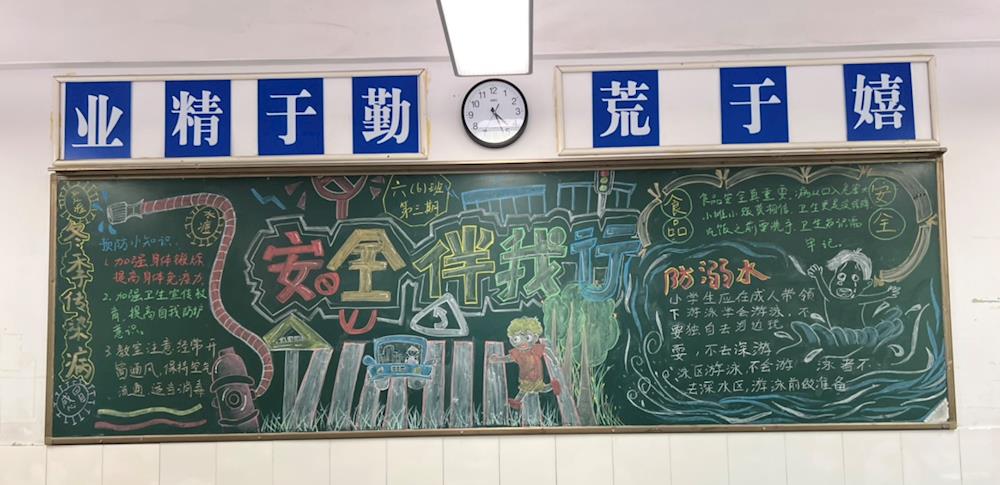 业精于勤
荒于嬉
12 1 2 3 4 5 6 7 8 9 10 11
冬季传染病
水痘
流感
预防小知识:
1.加强身体锻炼
提高身体免疫力
2.加强卫生宣传教
育,提高自我防护
意识。
3.教室注意经常开
窗通风,保持空气
流通,适当消毒
六(6)班
第三期
安全伴我行
食品
安全
食品安全最重要,病从口入
小摊小贩莫相信,卫生
吃饭之前要洗手,卫生
牢记。
防溺水
小学生应在成人带领
下游泳学会游泳,不
要独自去河边玩
耍,不去深游
泳区游泳,不会游泳者不
去深水区,游泳前做准备